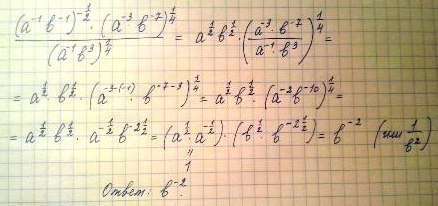 (a⁻¹b⁻¹)^(-1/2) · (a⁻³b⁻⁷)^(1/4) / (a⁻¹b³)^(1/4) = a^(1/2) b^(1/2) · (a⁻³·b⁻⁷ / a⁻¹·b³)^(1/4) =
= a^(1/2) b^(1/2) · (a^(-3-(-1)) · b^(-7-3))^(1/4) = a^(1/2) b^(1/2) · (a⁻² b⁻¹⁰)^(1/4) =
= a^(1/2) b^(1/2) · a^(-1/2) b^(-2 1/2) = (a^(1/2) · a^(-1/2)) · (b^(1/2) · b^(-2 1/2)) = b⁻² (или 1/b²)
"
1
Ответ: b⁻².